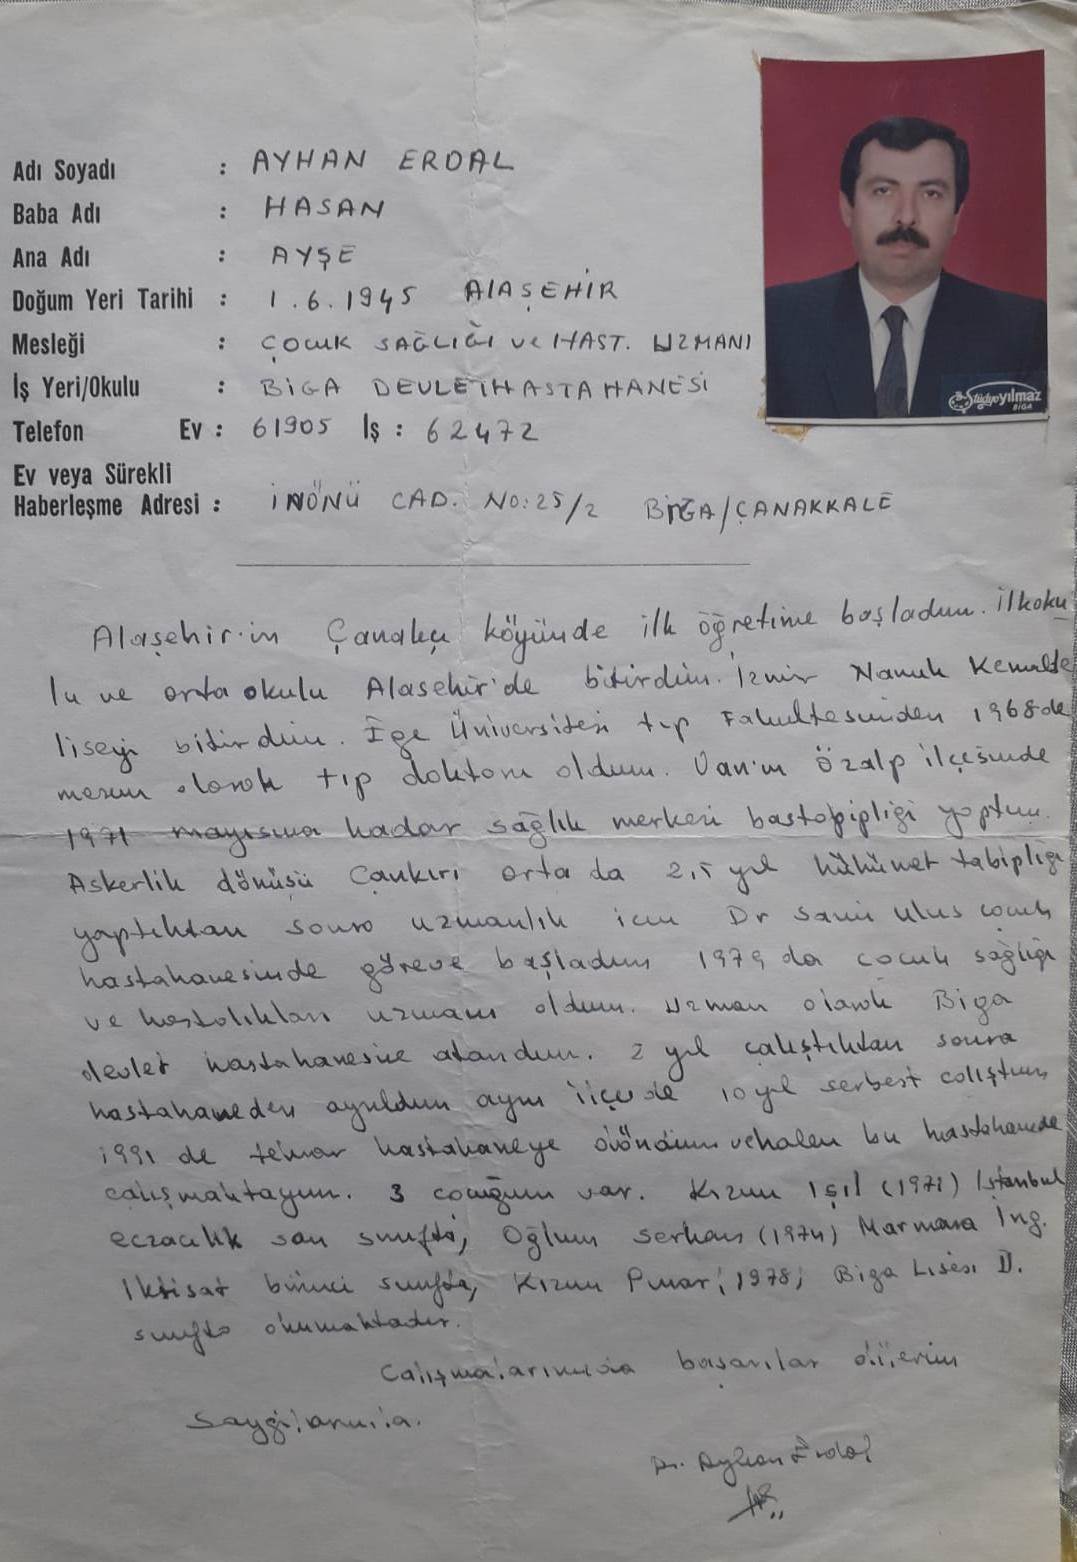 Adı Soyadı : AYHAN ERDAL
Baba Adı : HASAN
Ana Adı : AYŞE
Doğum Yeri Tarihi : 1.6.1945 AlAŞEHİR
Mesleği : ÇOCUK SAĞLIĞI ve HAST. UZMANI
İş Yeri/Okulu : BİGA DEVLET HASTAHANESİ
Telefon Ev : 61905 İş : 62472
Ev veya Sürekli
Haberleşme Adresi : İNÖNÜ CAD. NO:25/2 BİGA/ÇANAKKALE
Stüdyo yılmaz
BİGA
Alaşehir'in köyünde ilk öğretime başladım. İlkoku
lu ve orta okulu Alaşehir'de bitirdim. İzmir Namık Kemalde
liseyi bitirdim. Ege Üniversitesi tıp Fakültesinden 1968 de
mezun olarak tıp doktoru oldum. Van'ın Özalp ilçesinde
1971 mayısına kadar sağlık merkezi baştabipliği yaptım.
Askerlik dönüşü Çankırı orta da 2,5 yıl hükümet tabipliği
yaptıktan sonra uzmanlık için Dr Sami Ulus çocuk
hastahanesinde göreve başladım 1979 da çocuk sağlığı
ve hastalıkları uzmanı oldum. Uzman olarak Biga
devlet hastahanesine atandım. 2 yıl çalıştıktan sonra
hastahaneden ayrıldım aynı ilçede 10 yıl serbest çalıştım
1991 de tekrar hastahaneye döndüm ve halen bu hastahanede
çalışmaktayım. 3 çocuğum var. Kızım Işıl (1971) İstanbul
eczacılık son sınıfta, Oğlum Serkan (1974) Marmara İng.
İktisat birinci sınıfta, Kızım Pınar (1978) Biga Lisesi II.
sınıfta okumaktadır.
Çalışmalarınızda başarılar dilerim
Saygılarımla.
Dr. Ayhan Erdal